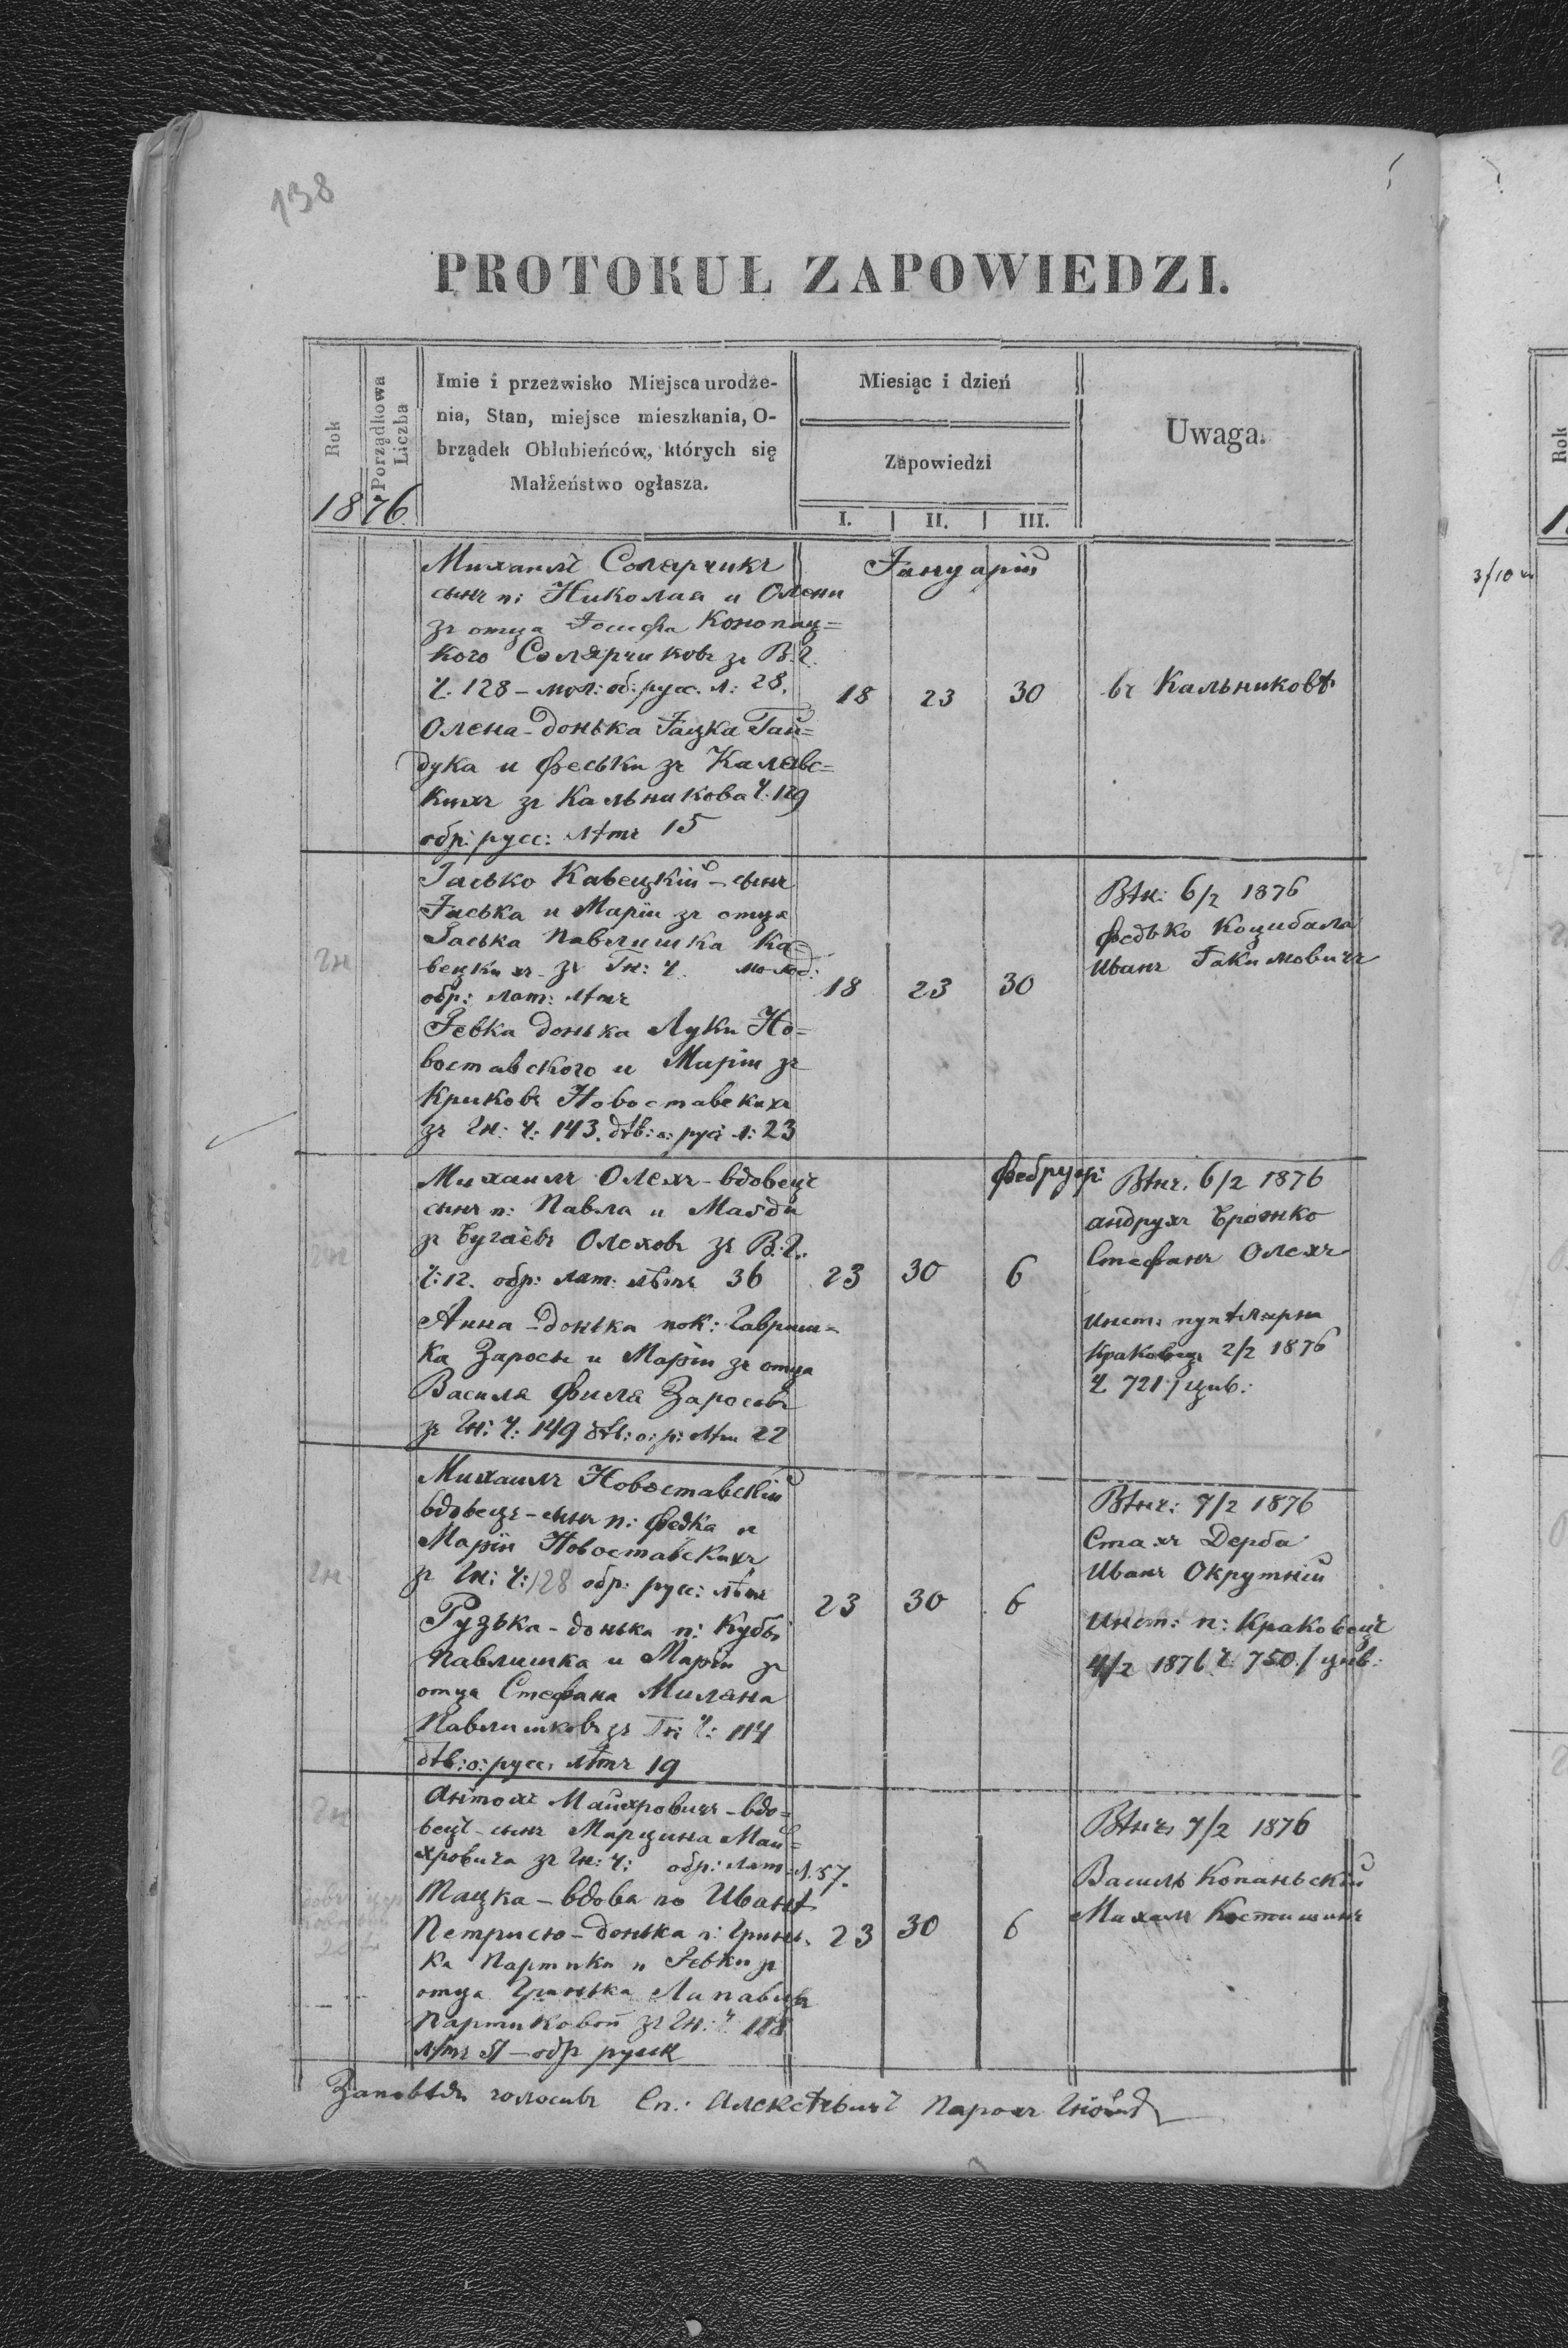 138
PROTOKUŁ ZAPOWIEDZI.
Rok
Porządkowa
Liczba
1876
Imie i przezwisko Miejsca urodze-
nia, Stan, miejsce mieszkania, O-
brządek Oblubieńców, których się
Małżeństwo ogłasza.
Miesiąc i dzień
Zapowiedzi
I. II. III.
Uwaga.
Михаилъ Солярчикъ
сынъ п: Николая и Олени
зъ отца Іосифа Конопац=
кого Солярчиковъ зъ В:Г.
Ч. 128 – мол: об: русс. л: 28.
Олена – донька Яцка Гай=
дука и Феськи зъ Калявс=
кихъ зъ Кальникова Ч. 129
обр: русс: лѣтъ 15
Януарій
18 23 30
въ Кальниковѣ
Гн
Іасько Кавецкій – сынъ
Іаська и Маріи зъ отца
Іаська Павлишка Ка=
вецкихъ зъ Гн: Ч. молод:
обр: лат: лѣтъ
Іевка донька Луки Но=
воставского и Маріи зъ
Криковъ Новоставскихъ
зъ Гн: Ч: 143. дѣв: о: рус: л: 23
18 23 30
Вѣн: 6/2 1876
Федько Коцибала
Иванъ Іакимовичъ
Гн
Михаилъ Олехъ – вдовецъ
сынъ п: Павла и Магди
зъ Бугаёвъ Олеховъ зъ В:Г.
Ч: 12. обр: лат: лѣтъ 36
Анна – донька пок: Гавриш=
ка Заросы и Маріи зъ отца
Василя Филя Заросовъ
зъ Гн: Ч: 149 дѣв: о: р: лѣтъ 22
Фебруар:
23 30 6
Вѣнч. 6/2 1876
Андрухъ Брожко
Стефанъ Олехъ
Инст: пупѣлярна
Краковецъ 2/2 1876
Ч. 721 / цив:
Гн
Михаилъ Новоставскій
вдовецъ – сынъ п: Федька и
Маріи Новоставскихъ
зъ Гн: Ч: 128 обр: русс: лѣтъ
Рузька – донька п: Кубы
Павлишка и Маріи зъ
отца Стефана Миляна
Павлишковъ зъ Гн: Ч: 114
дѣв: о: русс: лѣтъ 19
23 30 6
Вѣнч: 7/2 1876
Стахъ Дерба
Иванъ Окрутній
Инст: п: Краковецъ
4/2 1876 Ч. 750 / цив:
Гн
Антохъ Майхровичъ – вдо=
вецъ – сынъ Марцина Май=
хровича зъ Гн: Ч: обр: лат: л. 57.
Тацка – вдова по Иванѣ
Петрисю – донька п: Гринь=
ка Партики и Іевки зъ
отца Гринька Липавця
Партиковой зъ Гн: Ч. 118
лѣтъ 51 – обр русск
23 30 6
Вѣнч. 7/2 1876
Василь Копаньскій
Михалъ Костишинъ
Заповѣди голосивъ Сп: Алексѣвичъ Парохъ